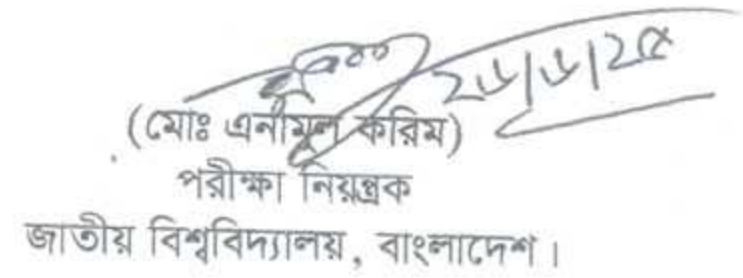 ২৬/৬/২৫
(মোঃ এনামুল করিম)
পরীক্ষা নিয়ন্ত্রক
জাতীয় বিশ্ববিদ্যালয়, বাংলাদেশ।